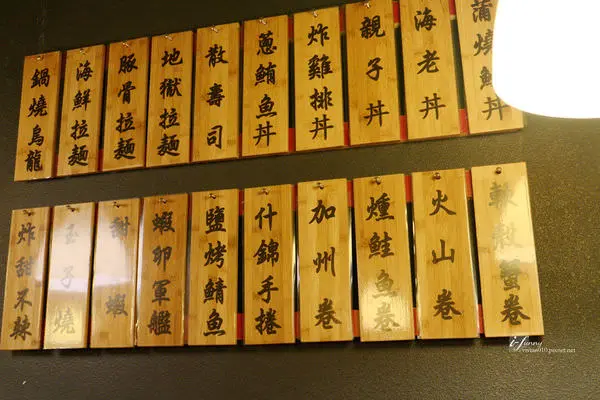 蒲燒鰻丼
海老丼
親子丼
炸雞排丼
蔥鮪魚丼
散壽司
地獄拉麵
豚骨拉麵
海鮮拉麵
鍋燒烏龍
軟殼蟹卷
火山卷
燻鮭魚卷
加州卷
什錦手捲
鹽烤鯖魚
蝦卵軍艦
甜蝦
玉子燒
炸甜不辣